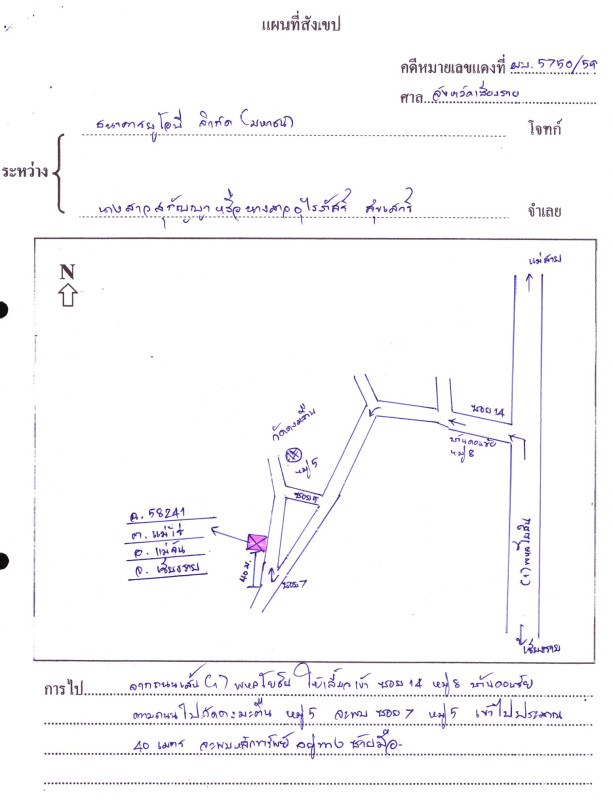 แผนที่สังเขป
คดีหมายเลขแดงที่ ผบ. 5750/59
ศาล จังหวัดเชียงราย
ธนาคารยูโอบี จำกัด (มหาชน) โจทก์
ระหว่าง
นางสาวสุกัญญา หรือ นางสาว จำเลย
N
แม่สาย
ซอย 14
บ้านดอนชัย
หมู่ 8
หมู่ 5
ซอย
ฉ. 58241
ต. แม่ไร่
อ. แม่จัน
จ. เชียงราย
40 ม.
ซอย 7
(1) พหลโยธิน
เชียงราย
การไป จากถนนเส้น (1) พหลโยธิน ให้เลี้ยวเข้า ซอย 14 หมู่ 8 บ้านดอนชัย
ตามถนนไป หมู่ 5 จะพบ ซอย 7 หมู่ 5 เข้าไปประมาณ
40 เมตร จะพบหลักทรัพย์ อยู่ทาง ซ้ายมือ-